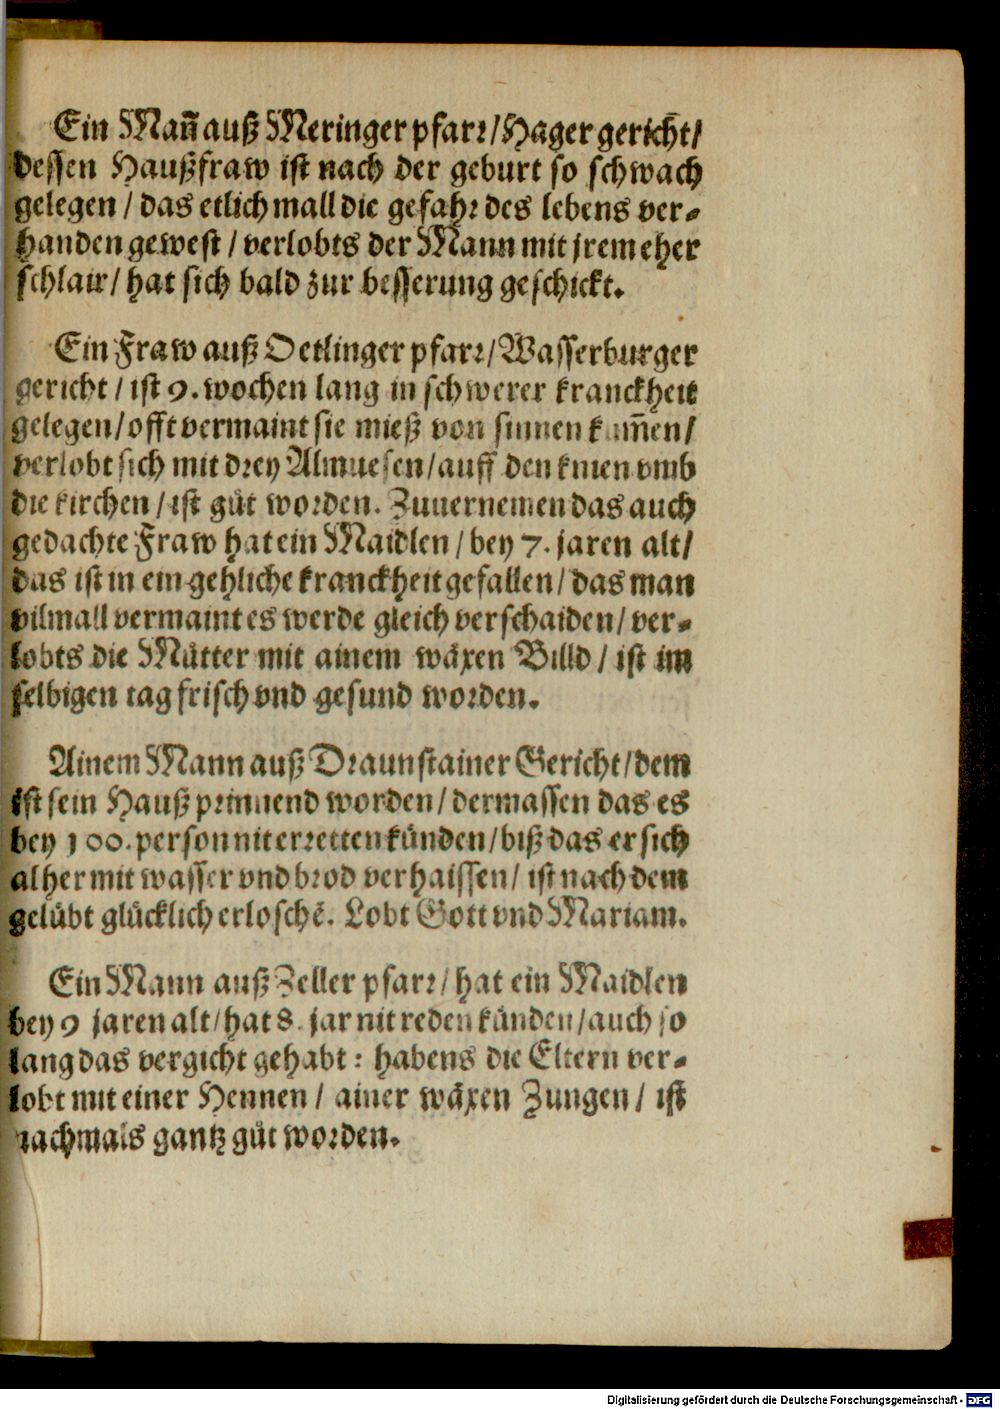 Ein Mañ auß Meringer pfarr/Hager gericht/
dessen Haußfraw ist nach der geburt so schwach
gelegen / das etlich mall die gefahr des lebens ver-
handen gewest / verlobts der Mann mit jrem eher
schlair/ hat sich bald zur besserung geschickt.
Ein Fraw auß Oetlinger pfarr/Wasserburger
gericht / ist 9. wochen lang in schwerer kranckheit
gelegen/offt vermaint sie mieß von sinnen kum̃en/
verlobt sich mit drey Almuesen/auff den knien vmb
die kirchen / ist gůt worden. Zuuernemen das auch
gedachte Fraw hat ein Maidlen / bey 7. jaren alt/
das ist in ein gehliche kranckheit gefallen/ das man
vilmall vermaint es werde gleich verschaiden/ ver-
lobts die Můtter mit ainem wäxen Billd / ist im
selbigen tag frisch vnd gesund worden.
Ainem Mann auß Draunstainer Gericht/dem
ist sein Hauß prinnend worden/ dermassen das es
bey 100. person nit erretten künden/biß das er sich
alher mit wasser vnd brod verhaissen/ ist nach dem
gelübt glücklich erloschē. Lobt Gott vnd Mariam.
Ein Mann auß Zeller pfarr/ hat ein Maidlen
bey 9 jaren alt/ hat 8. jar nit reden künden/auch so
lang das vergicht gehabt : habens die Eltern ver-
lobt mit einer Hennen / ainer wäxen Zungen / ist
nachmals gantz gůt worden.
Digitalisierung gefördert durch die Deutsche Forschungsgemeinschaft - DFG